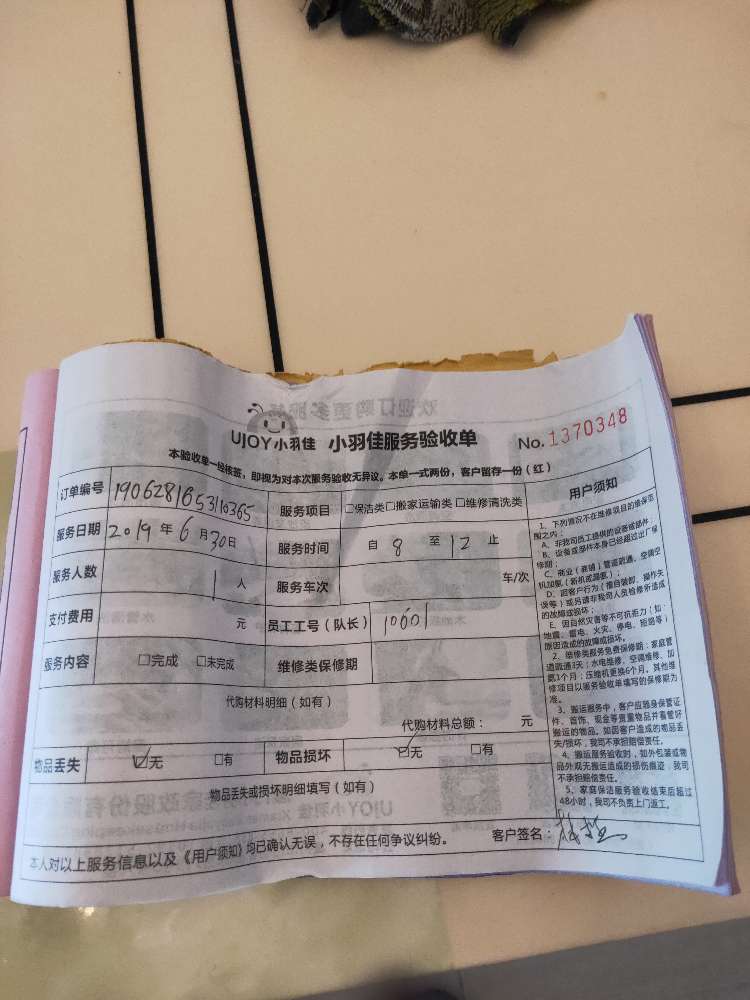 UJOY小羽佳 小羽佳服务验收单 No. 1370348
本验收单一经核签，即视为对本次服务验收无异议。本单一式两份，客户留存一份（红）
订单编号 1906281653110365 服务项目 □保洁类□搬家运输类 □维修清洗类
服务日期 2019 年 6 月 30日 服务时间 自 8 至 12 止
服务人数 1 人 服务车次 车/次
支付费用 元 员工工号（队长） 10601
服务内容 □完成 □未完成 维修类保修期
代购材料明细（如有）
代购材料总额： 元
物品丢失 ☑无 □有 物品损坏 ☑无 □有
物品丢失或损坏明细填写（如有）
本人对以上服务信息以及《用户须知》均已确认无误，不存在任何争议纠纷。 客户签名：
用户须知
1、下列情况不在维修项目的维保范
围之内：
A、非我司员工提供的设备或部件
B、设备或部件本身已经超过出厂保
修期；
C、商业（商铺）管道疏通、空调空
机加氨（新机或漏氨）；
D、因客户行为（擅自装卸、操作失
误等）或另请非我司人员检修所造成
的故障或损坏；
E、因自然灾害等不可抗拒力（如：
地震、雷电、火灾、停电、短路等）
原因造成的故障或损坏。
2、维修类服务免费保修期：家庭管
道疏通3天；水电维修、空调维修、加
氨1个月；压缩机更换6个月。其他维
修项目以服务验收单填写的保修期为
准。
3、搬运服务中，客户应随身保管证
件、首饰、现金等贵重物品并看管好
搬运的物品。如因客户造成的物品丢
失/损坏，我司不承担赔偿责任。
4、搬运服务验收时，如外包装或物
品外观无搬运造成的损伤痕迹，我司
不承担赔偿责任。
5、家庭保洁服务验收结束后超过
48小时，我司不负责上门返工。